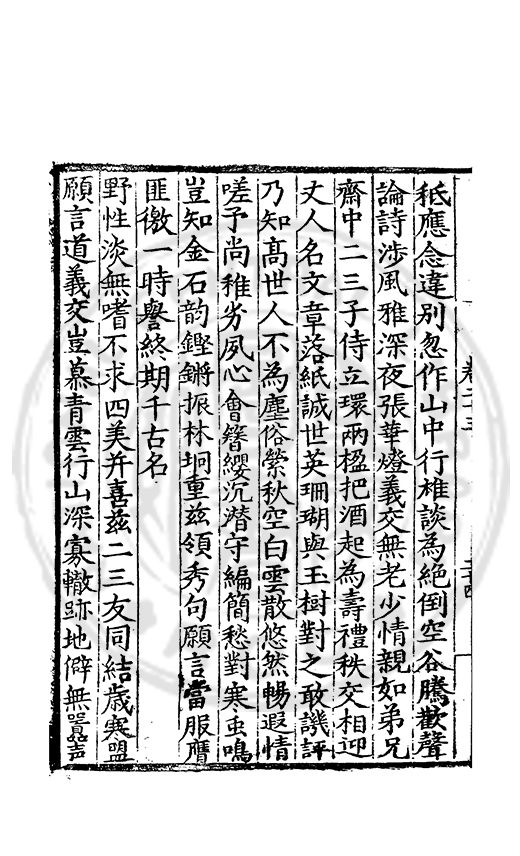 秪應念違別忽作山中行樵談為絕倒空谷騰歡聲
論詩涉風雅深夜張華燈義交無老少情親如弟兄
齋中二三子侍立環兩楹把酒起為壽禮秩交相迎
丈人名文章落紙誠世英珊瑚與玉樹對之敢譏評
乃知髙世人不為塵俗縈秋空白雲散悠然暢遐情
嗟予尚稚劣夙心會簪纓沉潛守編簡愁對寒虫鳴
豈知金石韵鏗鏘振林坰重兹領秀句願言當服膺
匪徼一時譽終期千古名
野性淡無嗜不求四美并喜兹二三友同結歲寒盟
願言道義交豈慕青雲行山深寡轍跡地僻無囂声